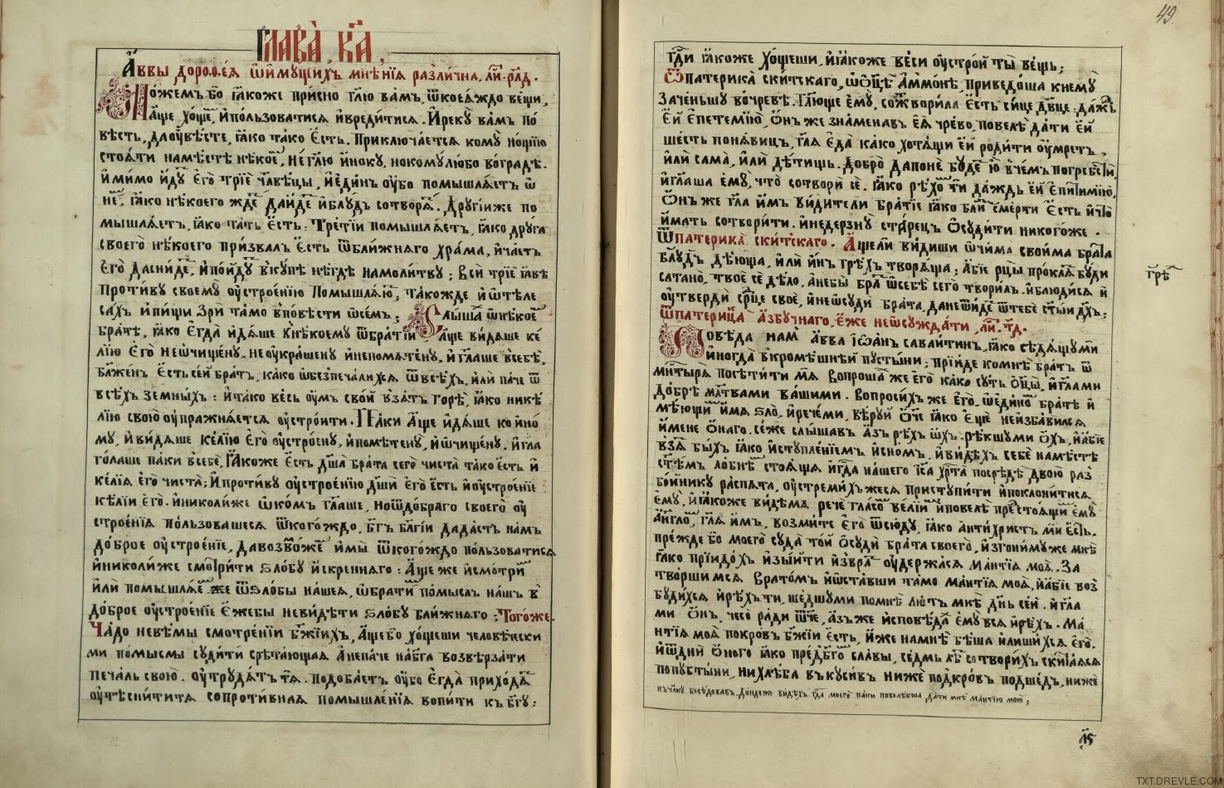 Глава̀, к҃а,
А҆ввы дороѳе́ѧ ѿи҆мꙋщихъ мнѣнїѧ разли́чна, ли́. рл҃д.
Мо́жемъ бо ꙗ҆́коже при́сно гл҃ю вамъ, ѿкоеѧ́ждо вещи,
А҆ще хо́щеⷨ, и҆ползоватисѧ и҆вреди́тисѧ. И҆рекꙋ̀ вамъ по́
вѣсть, даоу҆вѣ́сте, ꙗ҆ко тако є҆́сть. Приключа́етсѧ комꙋ̀ но́щїю
стоѧ́ти намѣстѣ нѣкоеⷨ, негл҃ю и҆́нокꙋ, нокомꙋлюбо воградѣ.
И҆ми́мо и҆дꙋ̀ є҆гѡ̀ трїѐ чл҃вѣцы, и҆є҆ди́нъ оу҆́бо помышлѧ́етъ ѡ҆
не́ⷨ, ꙗ҆ко нѣкоего жде́ⷮ да́иде́ⷮ и҆блꙋ́дъ сотвори́ⷮ. Дрꙋгі́иже по
мышлѧ́етъ, ꙗ҆ко та́ть є҆́сть. Тре́тїи помышлѧ́етъ, ꙗ҆ко дрꙋ́га
своего̀ нѣ́коего призва́лъ є҆́сть ѿбли́жнѧго хра́ма, и҆ча́етъ
є҆го̀ дасни́деⷮ, и҆по́йдꙋⷮ вкꙋ́пѣ нѣ́гдѣ намоли́твꙋ; всѝ трїѐ
Проти́вꙋ своемꙋ̀ оу҆строе́нїю помышлѧ́ю, та́кожде и҆ѡтѣле
сахъ и҆пи́щи зрѝ та́мо вповѣсти ѡсе́мъ; Слы́шаⷯ ѡнѣ́коеⷨ
бра́тѣ, ꙗ҆ко є҆гда̀ и҆дѧ́ше кнѣ́коемꙋ ѿбра́тїиⷤ А҆ще ви́дѧше ке́
лїю є҆го̀ неѡчи́щенꙋ, неоу҆кра́шенꙋ и҆непоме́тенꙋ, и҆гл҃аше всебѣ̀,
бл҃же́нъ є҆́сть сей бра́тъ, ка́ко ѡбезпеча́лихсѧ ѿвсѣ́хъ, и҆лѝ па́че ѿ
всѣ́хъ земны́хъ: и҆та́ко ве́сь оу҆́мъ сво́й взѧ́тъ горѣ̀, ꙗ҆ко никѐ
лїю свою̀ оу҆пражнѧ́етсѧ оу҆строити. Па́ки а҆ще и҆дѧ́ше ко и҆но́
мꙋ, и҆ви́дѧше ке́лїю є҆го̀ оу҆строенꙋ, и҆поме́тенꙋ, и҆ѡчи́щенꙋ, и҆гла
го́лаше па́ки всебѣ̀, ꙗ҆́коже є҆́сть дш҃а бра́та сего̀ чиста̀ та́ко є҆́сть и҆
ке́лїѧ є҆го̀ чиста̀; и҆проти́вꙋ оу҆строенїю дш҃и є҆го̀ є҆́сть и҆оу҆строе́нїе
ке́лїи є҆го̀. и҆николи́же ѡко́мъ гл҃аше, ноѿдо́браго своего̀ оу҆
строе́нїѧ по́льзовашесѧ ѿкого́ждо. Бг҃ъ бл҃гі́и дада́стъ на́мъ
до́брое оу҆строе́нїе, давозмо́жеⷨ и҆ мы̀ ѿкого́ждо по́льзоватисѧ
и҆николи́же смотри́ти ѕло́бꙋ и҆скре́ннѧго: А҆ще же и҆смотри́ⷨ
и҆лѝ помышлѧ́еⷨ же ѿѕло́бы на́шеѧ, ѡбрати́ помы́слъ на́шъ в
до́брое оу҆строе́нїе є҆́жебы неви́дѣти ѕло́бꙋ бли́жнѧго: Того́же.
Ча́до неве́мы смотре́нїи бж҃їихъ, А҆щебо хо́щеши человѣ́чески
ми по́мыслы сꙋди́ти срѣта́ющаѧ а҆непа́че наб҃га возверза́ти
печа́ль свою̀. оу҆трꙋдѧ́тъ тѧ. подоба́етъ оу҆́бо є҆гда̀ прихо́дѧⷮ
оу҆тѣсни́ти тѧ сопроти́внаѧ помышле́нїѧ вопи́ти къбг҃ꙋ;
49.
гд҃и ꙗ҆́коже хо́щеши, и҆ꙗ҆́коже вѣ́си оу҆стро́й ты̀ ве́щь;
Ѿпатерика̀ ски́тскаго, ѡѻ҆ц҃ѣ̀ а҆ммо́нѣ, приведо́ша кнемꙋ̀
Заче́ншꙋ вочре́вѣ. Гл҃юще є҆мꙋ̀, сотвори́ла є҆́сть си́це дв҃це. да́жⷣь
є҆́й є҆пете́мїю, ѻ҆́нъ же зна́менавъ є҆ѧ̀ чре́во, повелѣ̀ да́ти є҆́й
ше́сть понѧ́вицъ, гл҃ѧ є҆да̀ ка́ко хотѧ́щи є҆́й роди́ти оу҆мре́тъ,
и҆лѝ сама̀, и҆лѝ дѣ́тищь. добро̀ дапонѐ бꙋ́деⷮ ю҆̀ вче́мъ погребстѝ,
и҆гл҃аша є҆мꙋ̀, что̀ сотворѝ сѐ. ꙗ҆ко рѣ́хоⷨ ти да́ждь є҆́й є҆питимїю̀,
ѻ҆́нъ же гл҃а и҆́мъ ви́дите ли бра́тїе ꙗ҆ко бли́ⷥ сме́рти є҆́сть и҆ что̀
и҆́мать сотвори́ти. и҆недерзнꙋ̀ ста́рецъ ѻ҆сꙋди́ти никого́же.
Ѿпатерика̀ ски́тскаго. А҆щели ви́диши ѻ҆чи́ма свои́ма бра́та
блꙋ́дъ дѣ́юща, и҆лѝ и҆́нъ грѣ́хъ творѧ́ща; а҆́бїе рцы̀ про́клѧⷮ бꙋ́ди
сатано̀, твоѐ сѐ дѣ́ло, а҆небы̀ бра́ⷮ ѿсебѐ сего̀ твори́лъ. и҆блюди́сѧ и҆
оу҆твердѝ ср҃це своѐ, и҆неѡсꙋдѝ бра́та, данеѿи́деⷮ ѿтебѐ ст҃ы́и дх҃ъ;
грѣⷯ
Ѿпатерика̀ а҆́збꙋчнаго, є҆́же неѡсꙋжда́ти, ли́. т҃д.
Повѣ́да на́мъ а҆́вва і҆ѡа́ннъ сава́итинъ, ꙗ҆ко сѣдѧ́щꙋми
и҆ногда̀ вкромѣ́шнѣй пꙋсты́ни, прїи́де комнѣ̀ бра́тъ ѿ
мнтырѧ̀ посѣти́ти мѧ̀ вопроша́ⷯ же є҆го̀ ка́ко сꙋ́ть ѻ҆ц҃ы̀, и҆гл҃а ми
до́брѣ мл҃твами ва́шими. Вопроси́хъ же є҆го̀, ѡє҆ди́ноⷨ бра́тѣ и҆
мѣ́ющиⷨ и҆́мѧ ѕло̀, и҆рече́ми, вѣ́рꙋй ѻ҆́ч҃е ꙗ҆ко є҆щѐ неизба́вилсѧ
и҆́мене ѻ҆́наго. се́же слы́шавъ а҆́зъ рѣ́хъ ѻ҆́хъ. рѣ́кшꙋми ѻ҆́хъ, и҆а҆́бїе
взѧ́ⷮ бы́хъ ꙗ҆ко и҆стꙋпле́нїемъ и҆сно́мъ, и҆ви́дѣхъ себѐ намѣстѣ
ст҃ѣмъ ло́бнѣⷨ стоѧ́ща и҆гд҃а на́шего і҆с҃а хр҃та̀ посредѣ̀ двою̀ раз
бо́йникꙋ распѧ́та, оу҆стреми́хъжесѧ пристꙋпи́ти и҆поклони́тисѧ
є҆мꙋ̀, и҆ꙗ҆́коже ви́дѣмѧ речѐ гла́соⷨ ве́лїиⷨ и҆повелѣ̀ пре́стоѧщиⷨ є҆мꙋ̀
а҆́нг҃лоⷨ, гл҃ѧ и҆́мъ, возми́те є҆го̀ ѿсю́дꙋ, ꙗ҆ко а҆нти́христъ мѝ є҆́сть.
пре́жде бо моего̀ сꙋда̀ то́й ѻ҆сꙋдѝ бра́та своего̀, и҆згони́мꙋже мнѣ̀
ꙗ҆ко прїидо́хъ и҆зы́йти и҆зврⷮа̀ оу҆держа́сѧ ма́нтїѧ моѧ̀. За
твори́шимсѧ врато́мъ и҆ѡста́вши та́мо ма́нтїѧ моѧ̀, и҆а҆́бїе воз
бꙋди́хсѧ и҆рѣ́хъти, ше́дшꙋми помнѣ̀ лю́тъ мнѣ̀ дн҃ь се́й. и҆гл҃а
ми ѻ҆́нъ, чесо̀ ра́ди ѻ҆́ч҃е, а҆́зъже и҆сповѣ́даⷯ є҆мꙋ̀ всѧ̀ и҆рѣ́хъ. Ма́
нтїѧ моѧ̀ покро́въ бж҃їи є҆́сть, и҆́же намнѣ̀ бѣ́ша и҆лиши́хсѧ є҆го̀.
и҆ѿднѝ ѻ҆́ного ꙗ҆ко пре́дбг҃оⷨ сла́вы, се́дмь лѣⷮ сотвори́хъ скита́ѧсѧ
попꙋсты́ни, нихлѣ́ба вкꙋси́въ ниже́ подкро́въ подше́дъ, ниже
къчл҃кꙋ бесѣ́довавъ. до́ндеже ви́дѣхъ гд҃а моего̀ па́ки повелѣ́вша, да́ти мнѣ̀ ма́нтїю мою̀;
TXT.DREVLE.COM